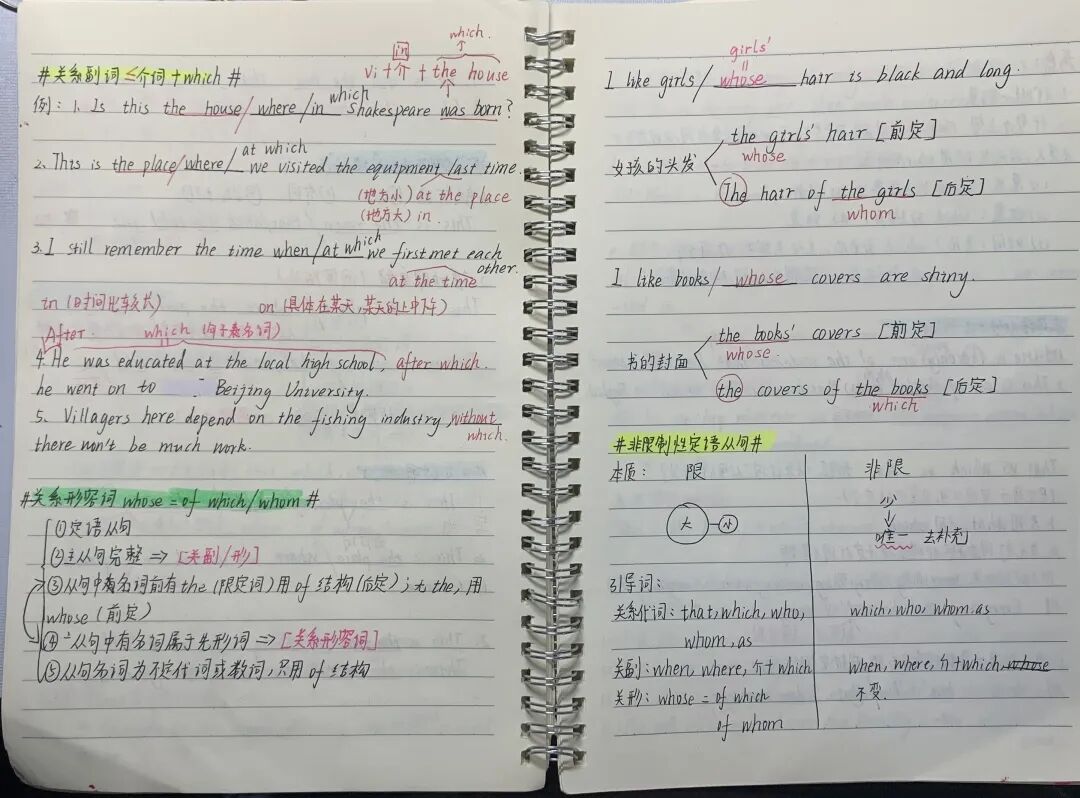 which.
in
#关系副词≤介词+which#
vi+介+the house
例: 1. Is this the house/where/in which Shakespeare was born?
at which
2. This is the place/where/ we visited the equipment last time.
(地方小) at the place
(地方大) in.
3. I still remember the time when/at which we first met each other.
at the time
in (时间比较长) on (具体在某天,某天的上中下午)
After. which (句子表名词)
4. He was educated at the local high school, after which.
he went on to Beijing University.
5. Villagers here depend on the fishing industry, without which.
there won't be much work.
#关系形容词 whose = of which/whom#
①定语从句
②主从句完整 => [关副/形]
③从句中有名词前有the(限定词)用of结构(后定); 无the, 用
whose (前定)
④从句中有名词属于先形词 => [关系形容词]
⑤从句名词为不定代词或数词,只用of结构
girls'
I like girls/ whose hair is black and long.
the girls' hair [前定]
whose
女孩的头发
The hair of the girls [后定]
whom
I like books/ whose covers are shiny.
the books' covers [前定]
whose.
书的封面
the covers of the books [后定]
which
#非限制性定语从句#
本质: 限 非限
大 小
少
唯一 去补充
引导词:
关系代词: that, which, who, which, who, whom. as
whom, as
关副: when, where, 介+which when, where, 介+which, whose
关形: whose = of which 不变.
of whom